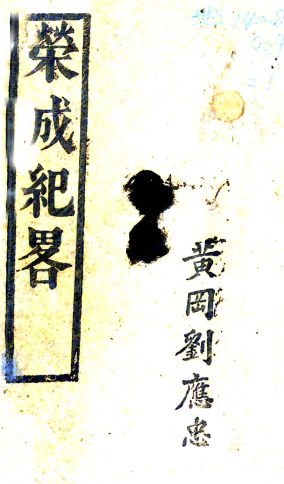 榮成紀畧
黃岡劉應忠